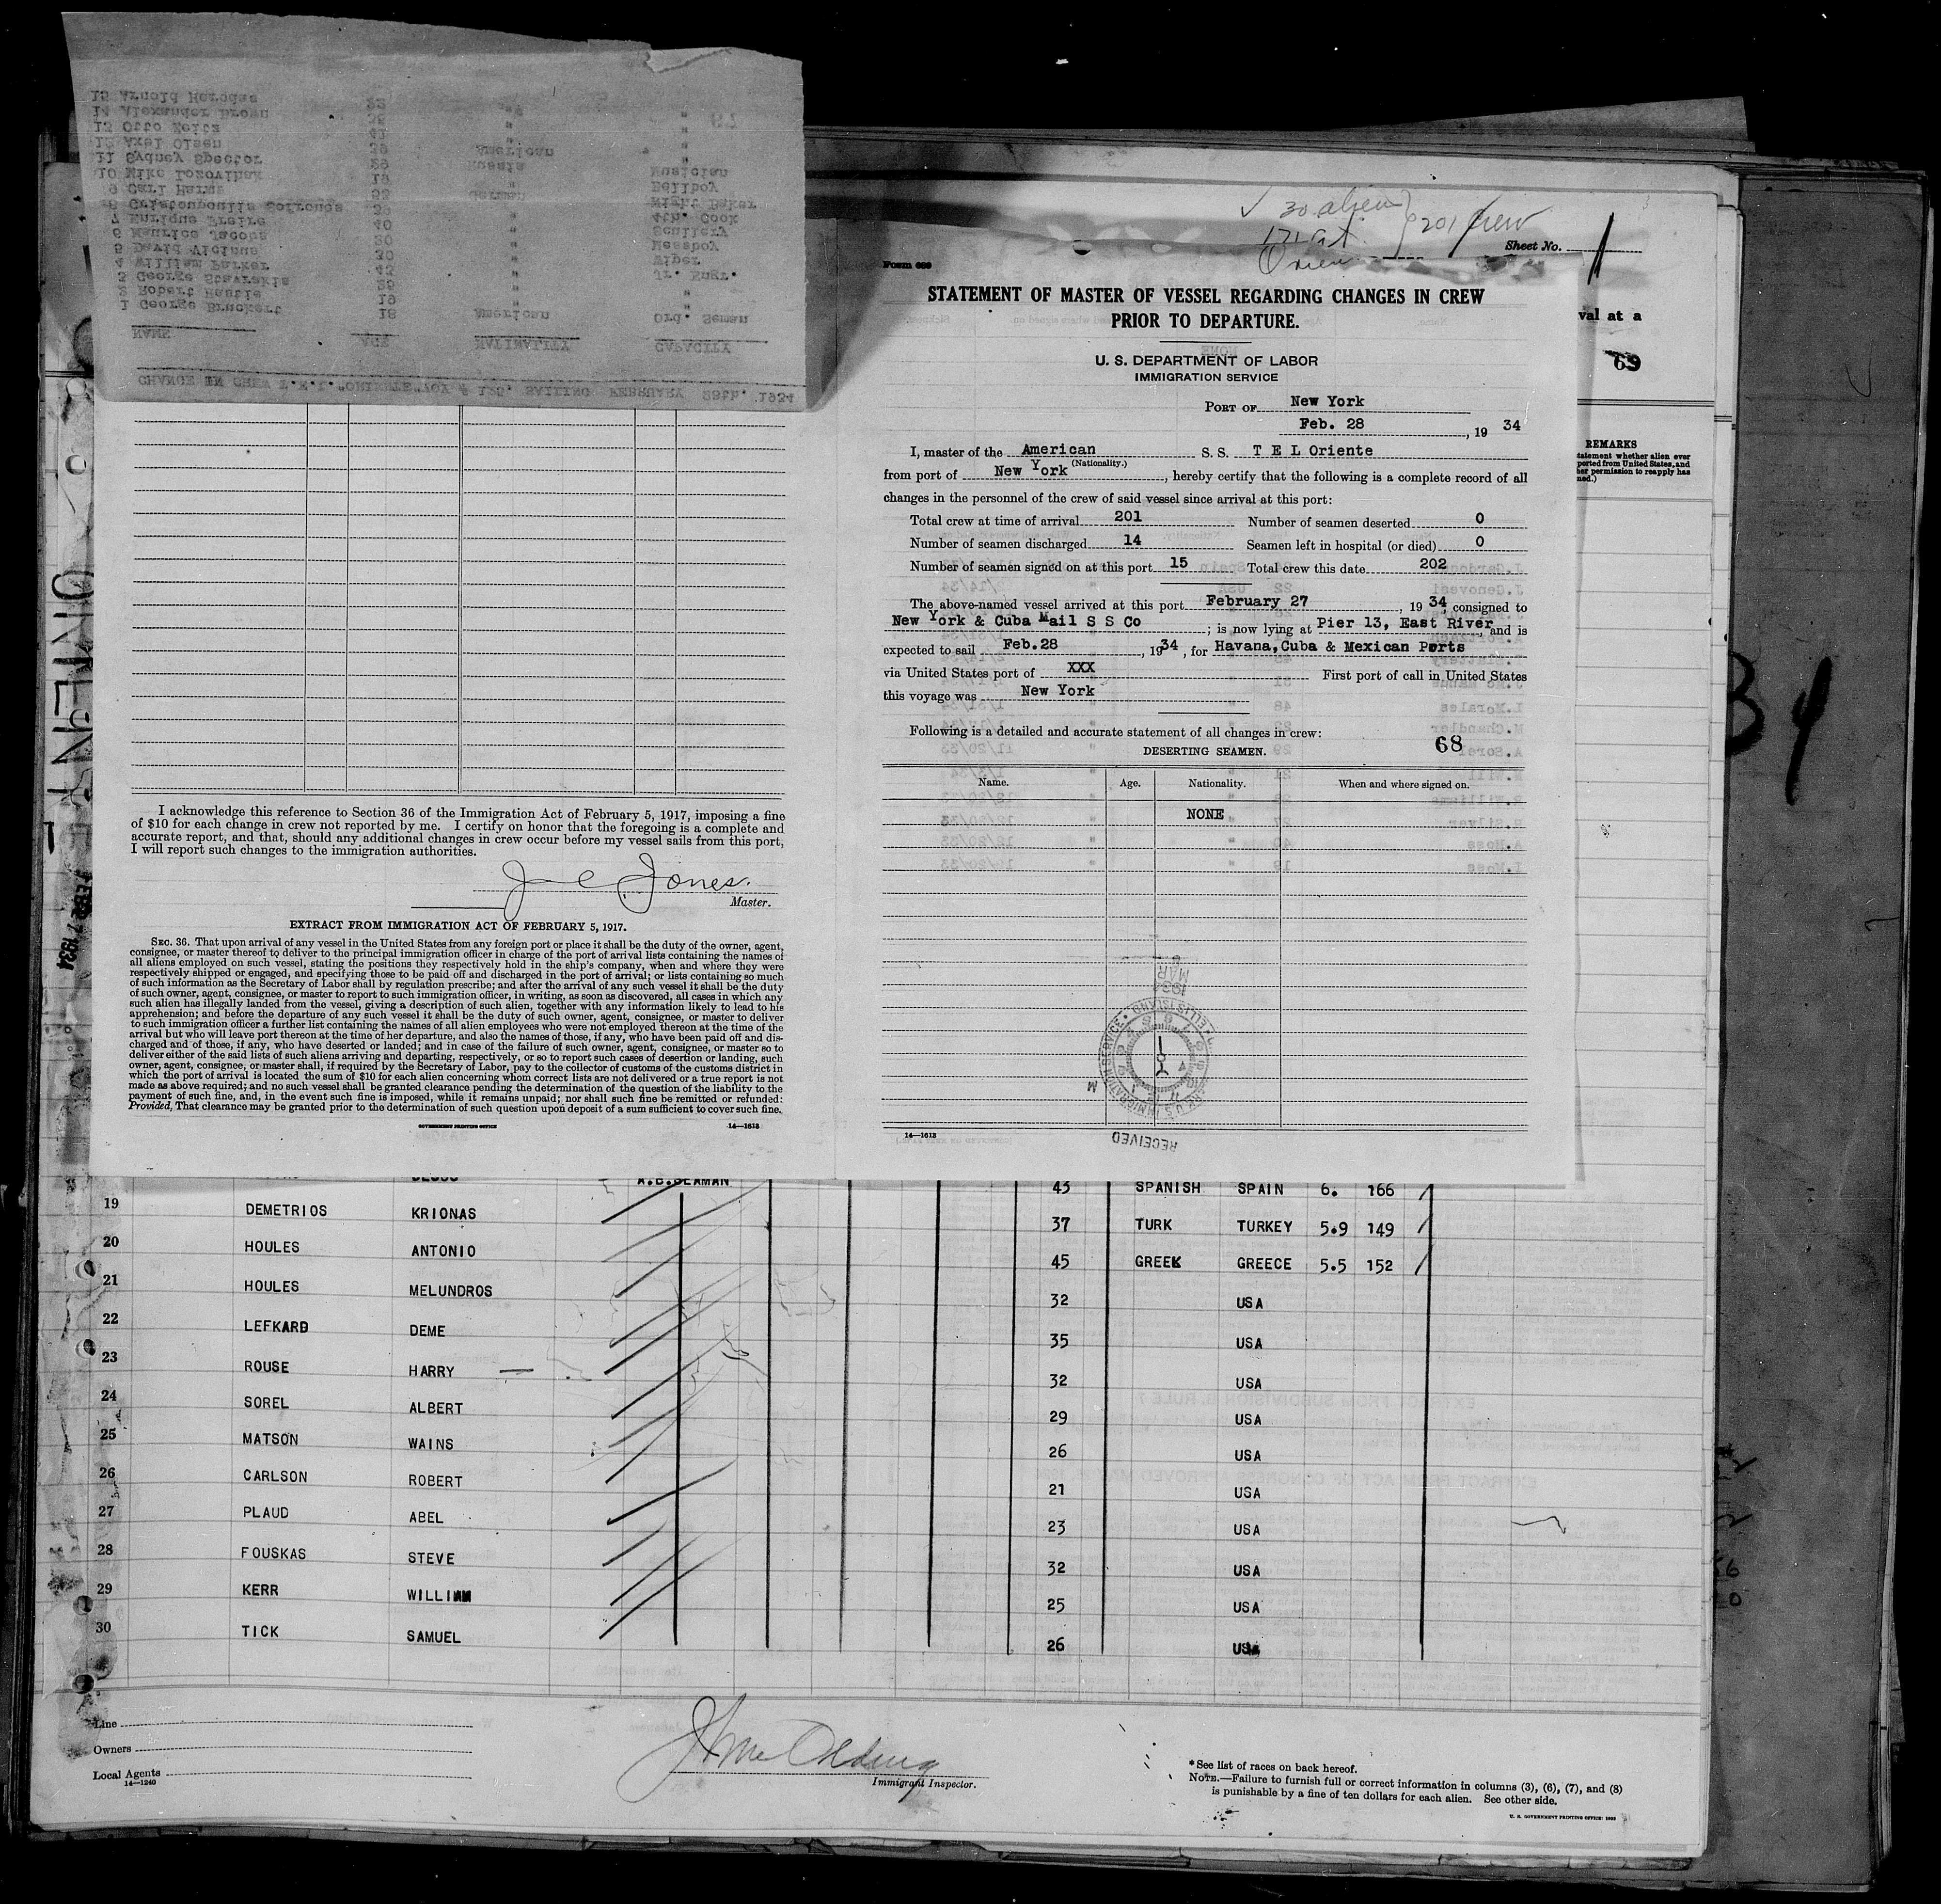 CHANGE IN CREW T.E.L. "ORIENTE" VOY # 126. SAILING FEBRUARY 28th. 1934
NAME AGE NATIONALITY CAPACITY
1 George Bruckert 18 American Ord. Seman
2 Robert 19 " "
3 George Stavrakis 28 " Jr. Engr.
4 William Parker 43 " Wiper
5 David Vicinus 30 " Messboy
6 Maurice Jacobs 30 " Scullery
7 Enrique Freire 40 " 4th. Cook
8 39 " Night Baker
9 Carl Harms 33 German Bellboy
10 Mike 19 " Musician
11 Sydney Spector 29 Russia "
12 Axel Olsen 39 American "
13 Otto 41 " "
14 Alexander Brown "
15 Arnold
I acknowledge this reference to Section 36 of the Immigration Act of February 5, 1917, imposing a fine
of $10 for each change in crew not reported by me. I certify on honor that the foregoing is a complete and
accurate report, and that, should any additional changes in crew occur before my vessel sails from this port,
I will report such changes to the immigration authorities.
J C Jones.
Master.
EXTRACT FROM IMMIGRATION ACT OF FEBRUARY 5, 1917.
SEC. 36. That upon arrival of any vessel in the United States from any foreign port or place it shall be the duty of the owner, agent,
consignee, or master thereof to deliver to the principal immigration officer in charge of the port of arrival lists containing the names of
all aliens employed on such vessel, stating the positions they respectively hold in the ship's company, when and where they were
respectively shipped or engaged, and specifying those to be paid off and discharged in the port of arrival; or lists containing so much
of such information as the Secretary of Labor shall by regulation prescribe; and after the arrival of any such vessel it shall be the duty
of such owner, agent, consignee, or master to report to such immigration officer, in writing, as soon as discovered, all cases in which any
such alien has illegally landed from the vessel, giving a description of such alien, together with any information likely to lead to his
apprehension; and before the departure of any such vessel it shall be the duty of such owner, agent, consignee, or master to deliver
to such immigration officer a further list containing the names of all alien employees who were not employed thereon at the time of the
arrival but who will leave port thereon at the time of her departure, and also the names of those, if any, who have been paid off and dis-
charged and of those, if any, who have deserted or landed; and in case of the failure of such owner, agent, consignee, or master so to
deliver either of the said lists of such aliens arriving and departing, respectively, or so to report such cases of desertion or landing, such
owner, agent, consignee, or master shall, if required by the Secretary of Labor, pay to the collector of customs of the customs district in
which the port of arrival is located the sum of $10 for each alien concerning whom correct lists are not delivered or a true report is not
made as above required; and no such vessel shall be granted clearance pending the determination of the question of the liability to the
payment of such fine, and, in the event such fine is imposed, while it remains unpaid; nor shall such fine be remitted or refunded:
Provided, That clearance may be granted prior to the determination of such question upon deposit of a sum sufficient to cover such fine.
GOVERNMENT PRINTING OFFICE 14—1613
30 alien
201 crew
Sheet No. 1
val at a
69
REMARKS
Form 689
STATEMENT OF MASTER OF VESSEL REGARDING CHANGES IN CREW
PRIOR TO DEPARTURE.
U. S. DEPARTMENT OF LABOR
IMMIGRATION SERVICE
PORT OF New York
Feb. 28, 19 34
I, master of the American S. S. T E L Oriente
(Nationality.)
from port of New York, hereby certify that the following is a complete record of all
changes in the personnel of the crew of said vessel since arrival at this port:
Total crew at time of arrival 201 Number of seamen deserted 0
Number of seamen discharged 14 Seamen left in hospital (or died) 0
Number of seamen signed on at this port 15 Total crew this date 202
The above-named vessel arrived at this port February 27, 19 34, consigned to
New York & Cuba Mail S S Co; is now lying at Pier 13, East River, and is
expected to sail Feb.28, 19 34, for Havana, Cuba & Mexican Ports
via United States port of XXX First port of call in United States
this voyage was New York
Following is a detailed and accurate statement of all changes in crew:
68
DESERTING SEAMEN.
Name. Age. Nationality. When and where signed on.
NONE
RECEIVED
14—1613
34
FEB 27 1934
A.B.SEAMAN 43 SPANISH SPAIN 6. 166
19 DEMETRIOS KRIONAS 37 TURK TURKEY 5.9 149
20 HOULES ANTONIO 45 GREEK GREECE 5.5 152
21 HOULES MELUNDROS 32 USA
22 LEFKARD DEME 35 USA
23 ROUSE HARRY — 32 USA
24 SOREL ALBERT 29 USA
25 MATSON WAINS 26 USA
26 CARLSON ROBERT 21 USA
27 PLAUD ABEL 23 USA
28 FOUSKAS STEVE 32 USA
29 KERR WILLIAM 25 USA
30 TICK SAMUEL 26 USA
Line
Owners
Local Agents
14—1240
Immigrant Inspector.
*See list of races on back hereof.
NOTE.—Failure to furnish full or correct information in columns (3), (6), (7), and (8)
is punishable by a fine of ten dollars for each alien. See other side.